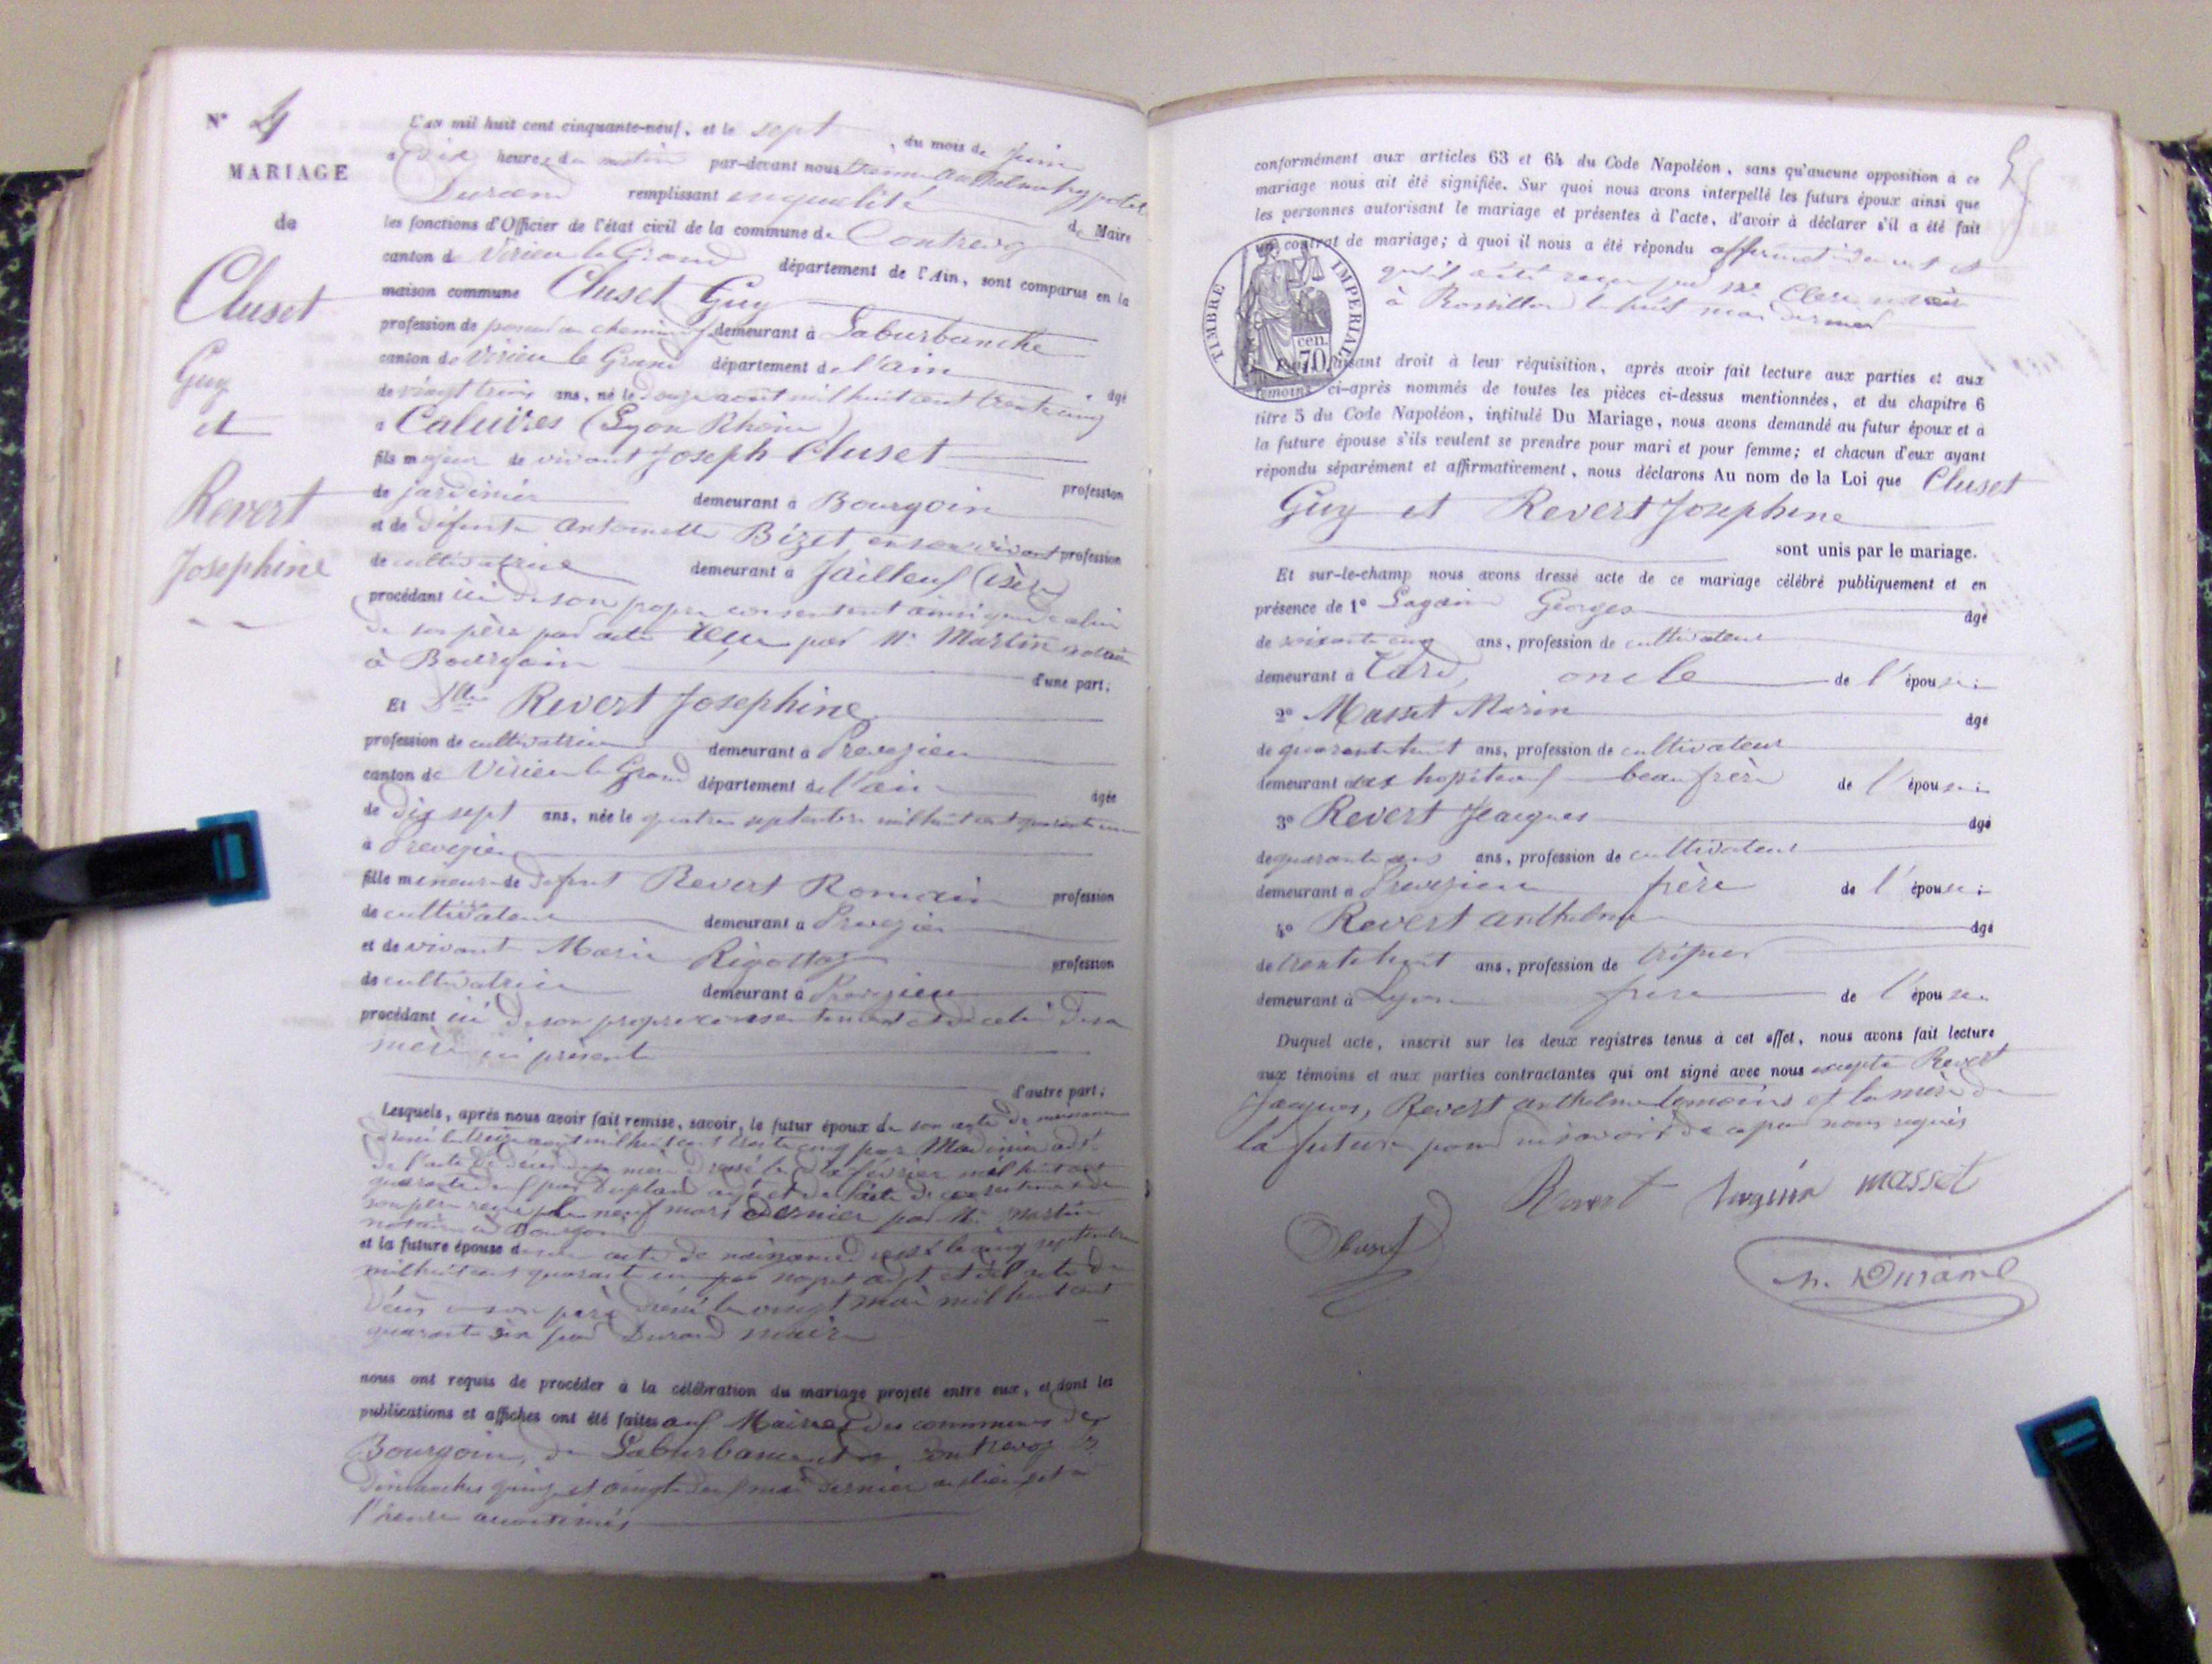 N° 4
MARIAGE
de
Cluset
Guy
et
Revert
Josephine
L'an mil huit cent cinquante-neuf, et le sept, du mois de Juin
à Dix heures du matin par-devant nous
Durand remplissant en qualité de Maire
les fonctions d'Officier de l'état civil de la commune de Contrevoz
canton de Virieu le Grand département de l'Ain, sont comparus en la
maison commune Cluset Guy
profession de demeurant à Laburbanche
canton de Virieu le Grand département de l'ain âgé
de vingt trois ans, né le douze août mil huit cent trente cinq
à Caluires (Lyon Rhône)
fils majeur de vivant Joseph Cluset profession
de jardinier demeurant à Bourgoin
et de défunte antoinette Bizet en son vivant profession
de cultivatrice demeurant à Jailleux (isère)
procédant ici de son propre consentement ainsi que de celui
de son père par acte reçu par Mr Martin notaire
à Bourgoin d'une part;
Et Dlle Revert Josephine
profession de cultivatrice demeurant à Prevezieu
canton de Virieu le Grand département de l'ain âgée
de dix sept ans, née le quatre septembre mil huit cent quarante un
à Prevezieu
fille mineure de défunt Revert Romain profession
de cultivateur demeurant à Prevezieu
et de vivant Marie Rigottaz profession
de cultivatrice demeurant à Prevezieu
procédant ici de son propre consentement et de celui de sa
mère ici présente
d'autre part;
Lesquels, après nous avoir fait remise, savoir, le futur époux de son acte de naissance
dressé le treize août mil huit cent trente cinq par adjt
de l'acte de décès de sa mère dressé le dix février mil huit cent
quarante neuf par Duplan adjt et de l'acte de consentement de
son père reçu le neuf mars dernier par Mr Martin
notaire à Bourgoin
et la future épouse de son acte de naissance dressé le cinq septembre
mil huit cent quarante un par adjt et de l'acte de
décès de son père dressé le vingt mai mil huit cent
quarante six par Durand maire
nous ont requis de procéder à la célébration du mariage projeté entre eux, et dont les
publications et affiches ont été faites aux Mairies des communes de
Bourgoin, de Laburbanche et de Contrevoz les
Dimanches quinze et vingt deux mai dernier au lieu et à
l'heure accoutumés
conformément aux articles 63 et 64 du Code Napoléon, sans qu'aucune opposition à ce
mariage nous ait été signifiée. Sur quoi nous avons interpellé les futurs époux ainsi que
les personnes autorisant le mariage et présentes à l'acte, d'avoir à déclarer s'il a été fait
un contrat de mariage; à quoi il nous a été répondu affirmativement et
qu'il a été reçu par Me Clerc notaire
à Rossillon le huit mai dernier
TIMBRE IMPERIAL
70 cen.
Puis, faisant droit à leur réquisition, après avoir fait lecture aux parties et aux
témoins ci-après nommés de toutes les pièces ci-dessus mentionnées, et du chapitre 6
titre 5 du Code Napoléon, intitulé Du Mariage, nous avons demandé au futur époux et à
la future épouse s'ils veulent se prendre pour mari et pour femme; et chacun d'eux ayant
répondu séparément et affirmativement, nous déclarons Au nom de la Loi que Cluset
Guy et Revert Josephine
sont unis par le mariage.
Et sur-le-champ nous avons dressé acte de ce mariage célébré publiquement et en
présence de 1° Georges âgé
de soixante cinq ans, profession de cultivateur
demeurant à oncle de l'épouse;
2° Masset Marin âgé
de quarante huit ans, profession de cultivateur
demeurant aux hopitaux beau frère de l'épouse;
3° Revert Jacques âgé
de quarante ans ans, profession de cultivateur
demeurant à Prevezieu frère de l'épouse;
4° Revert anthelme âgé
de trente huit ans, profession de tripier
demeurant à Lyon frere de l'épouse
Duquel acte, inscrit sur les deux registres tenus à cet effet, nous avons fait lecture
aux témoins et aux parties contractantes qui ont signé avec nous excepté Revert
Jacques, Revert anthelme temoins et la mère de
la future pour ne savoir de ce par nous requis
Revert masset
Cluset
h. Durand